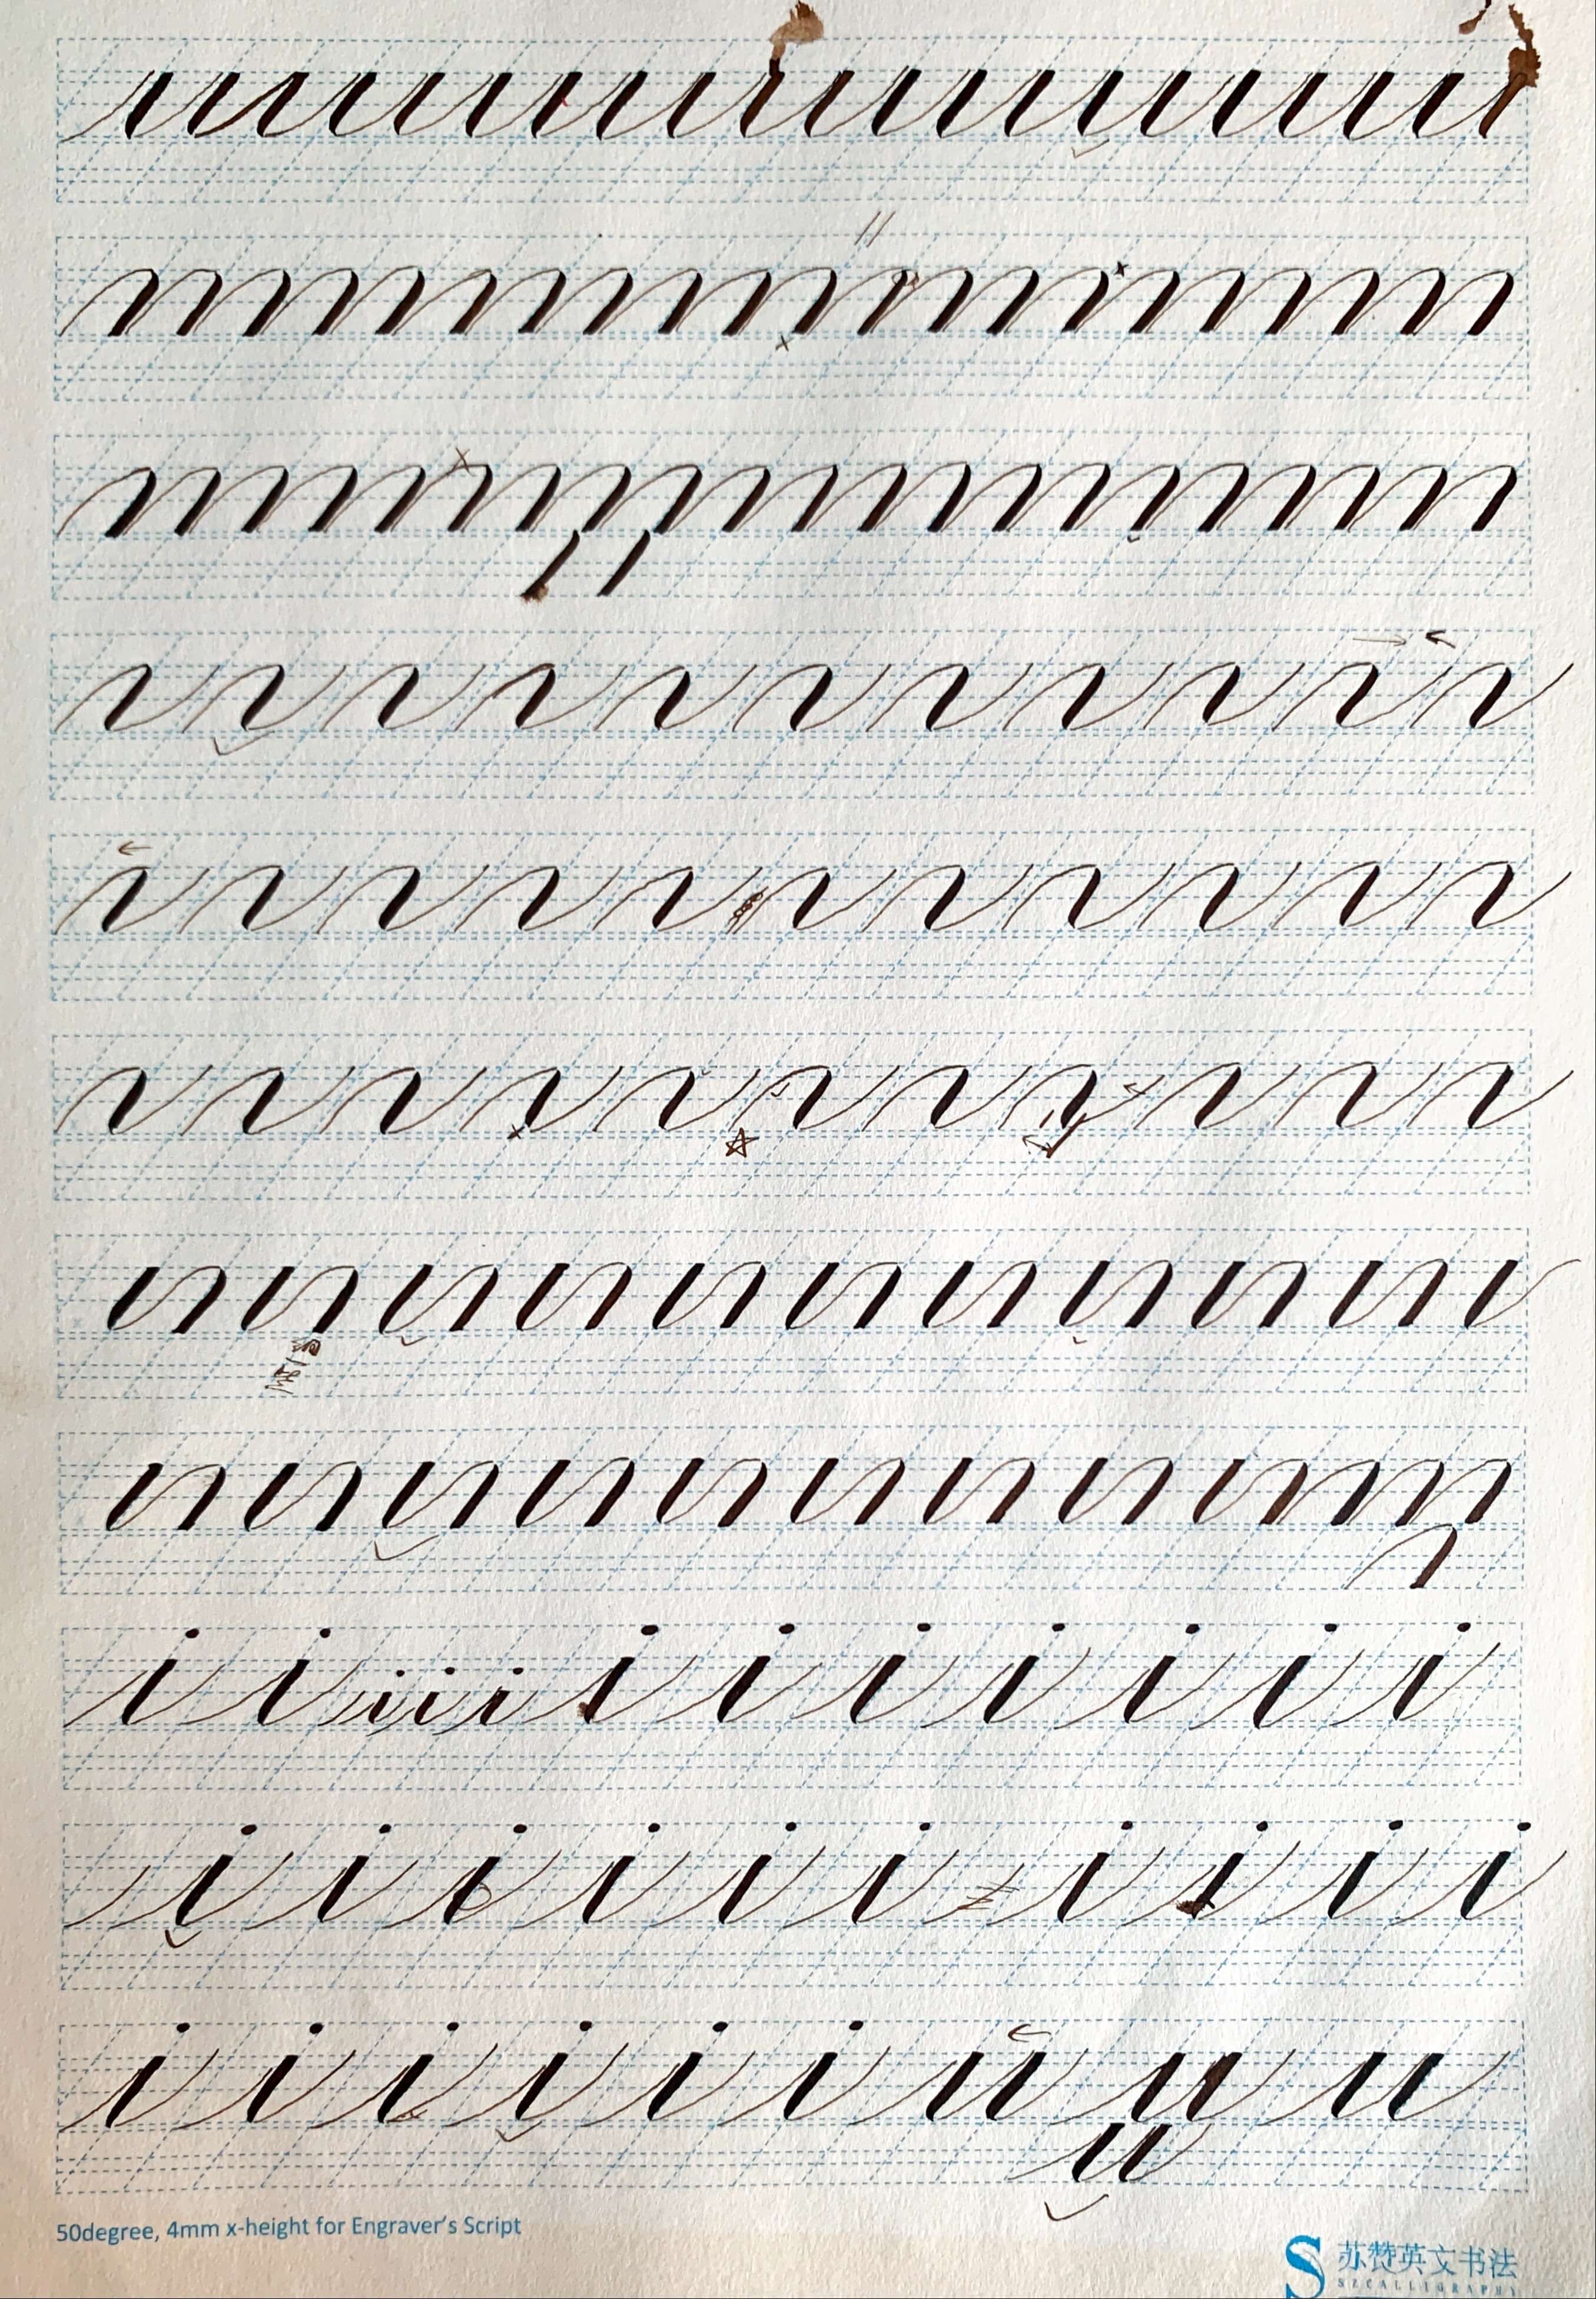 i i i i i i i i i i i i
i i i i i i i i i i
i i i i i i u u u
u
50degree, 4mm x-height for Engraver's Script
苏赞英文书法
SZCALLIGRAPHY